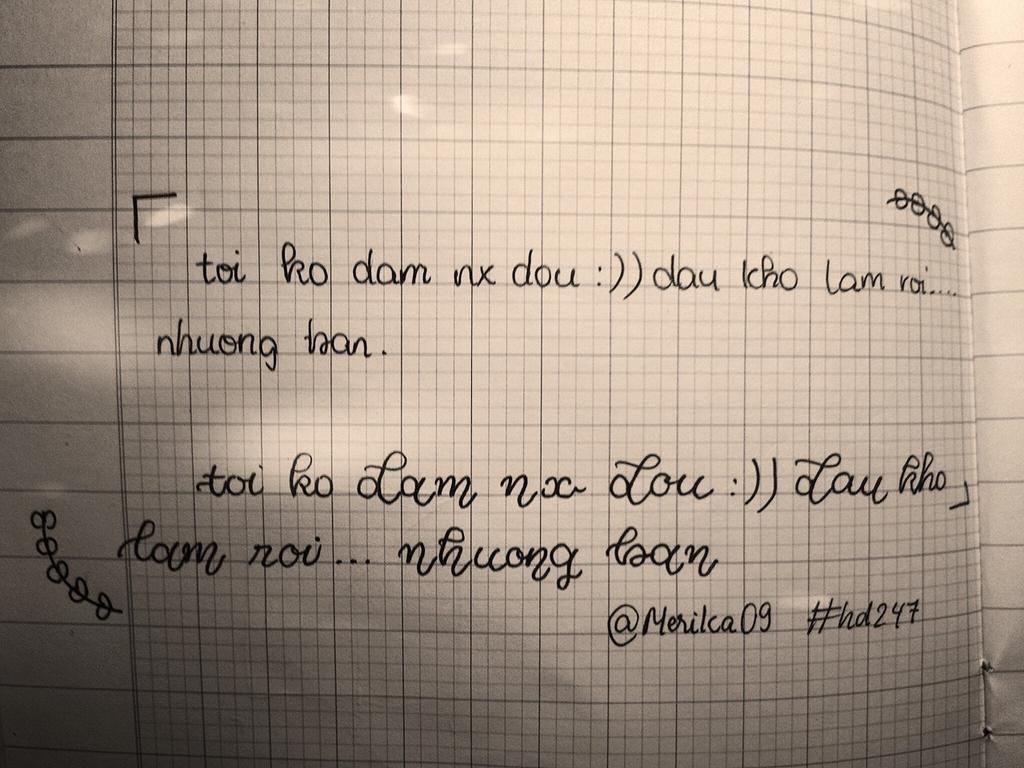 toi ko dam nx dou :)) dau kho lam roi....
nhuong ban.
toi ko dam nx dou :)) dau kho
lam roi... nhuong ban
@Merilca09 #hd247